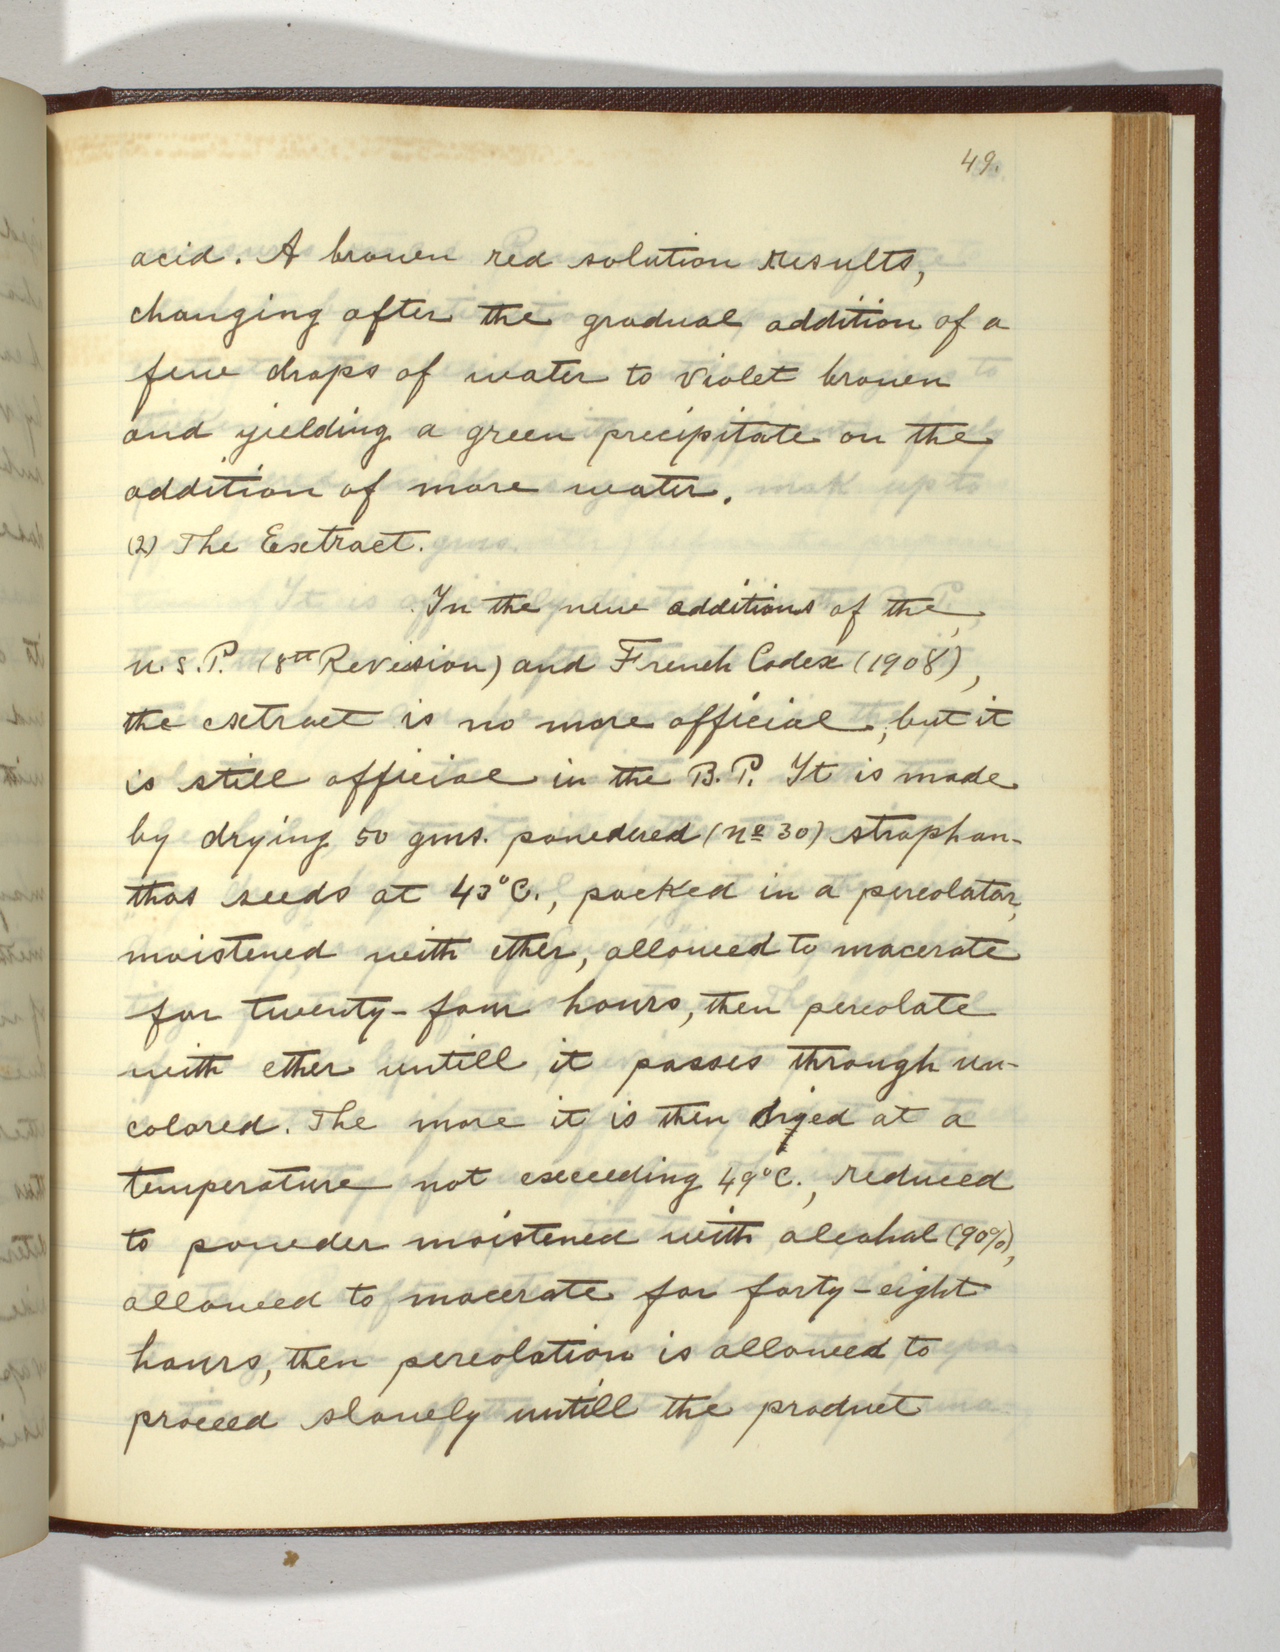 49.
acid. A brown red solution results,
changing after the gradual addition of a
few drops of water to violet brown
and yielding a green precipitate on the
addition of more water.
(2) The Extract.
In the new additions of the
U.S.P. (8th Revision) and French Codex (1908),
the extract is no more official, but it
is still official in the B.P. It is made
by drying 50 gms. powdered (No 30) strophan-
thos seeds at 43°C., packed in a percolator,
moistened with ether, allowed to macerate
for twenty-four hours, then percolate
with ether untill it passes through un-
colored. The more it is then dryed at a
temperature not exceeding 49°C., reduced
to powder moistened with alcohal (90%),
allowed to macerate for forty-eight
hours, then percolation is allowed to
proceed slowly untill the product